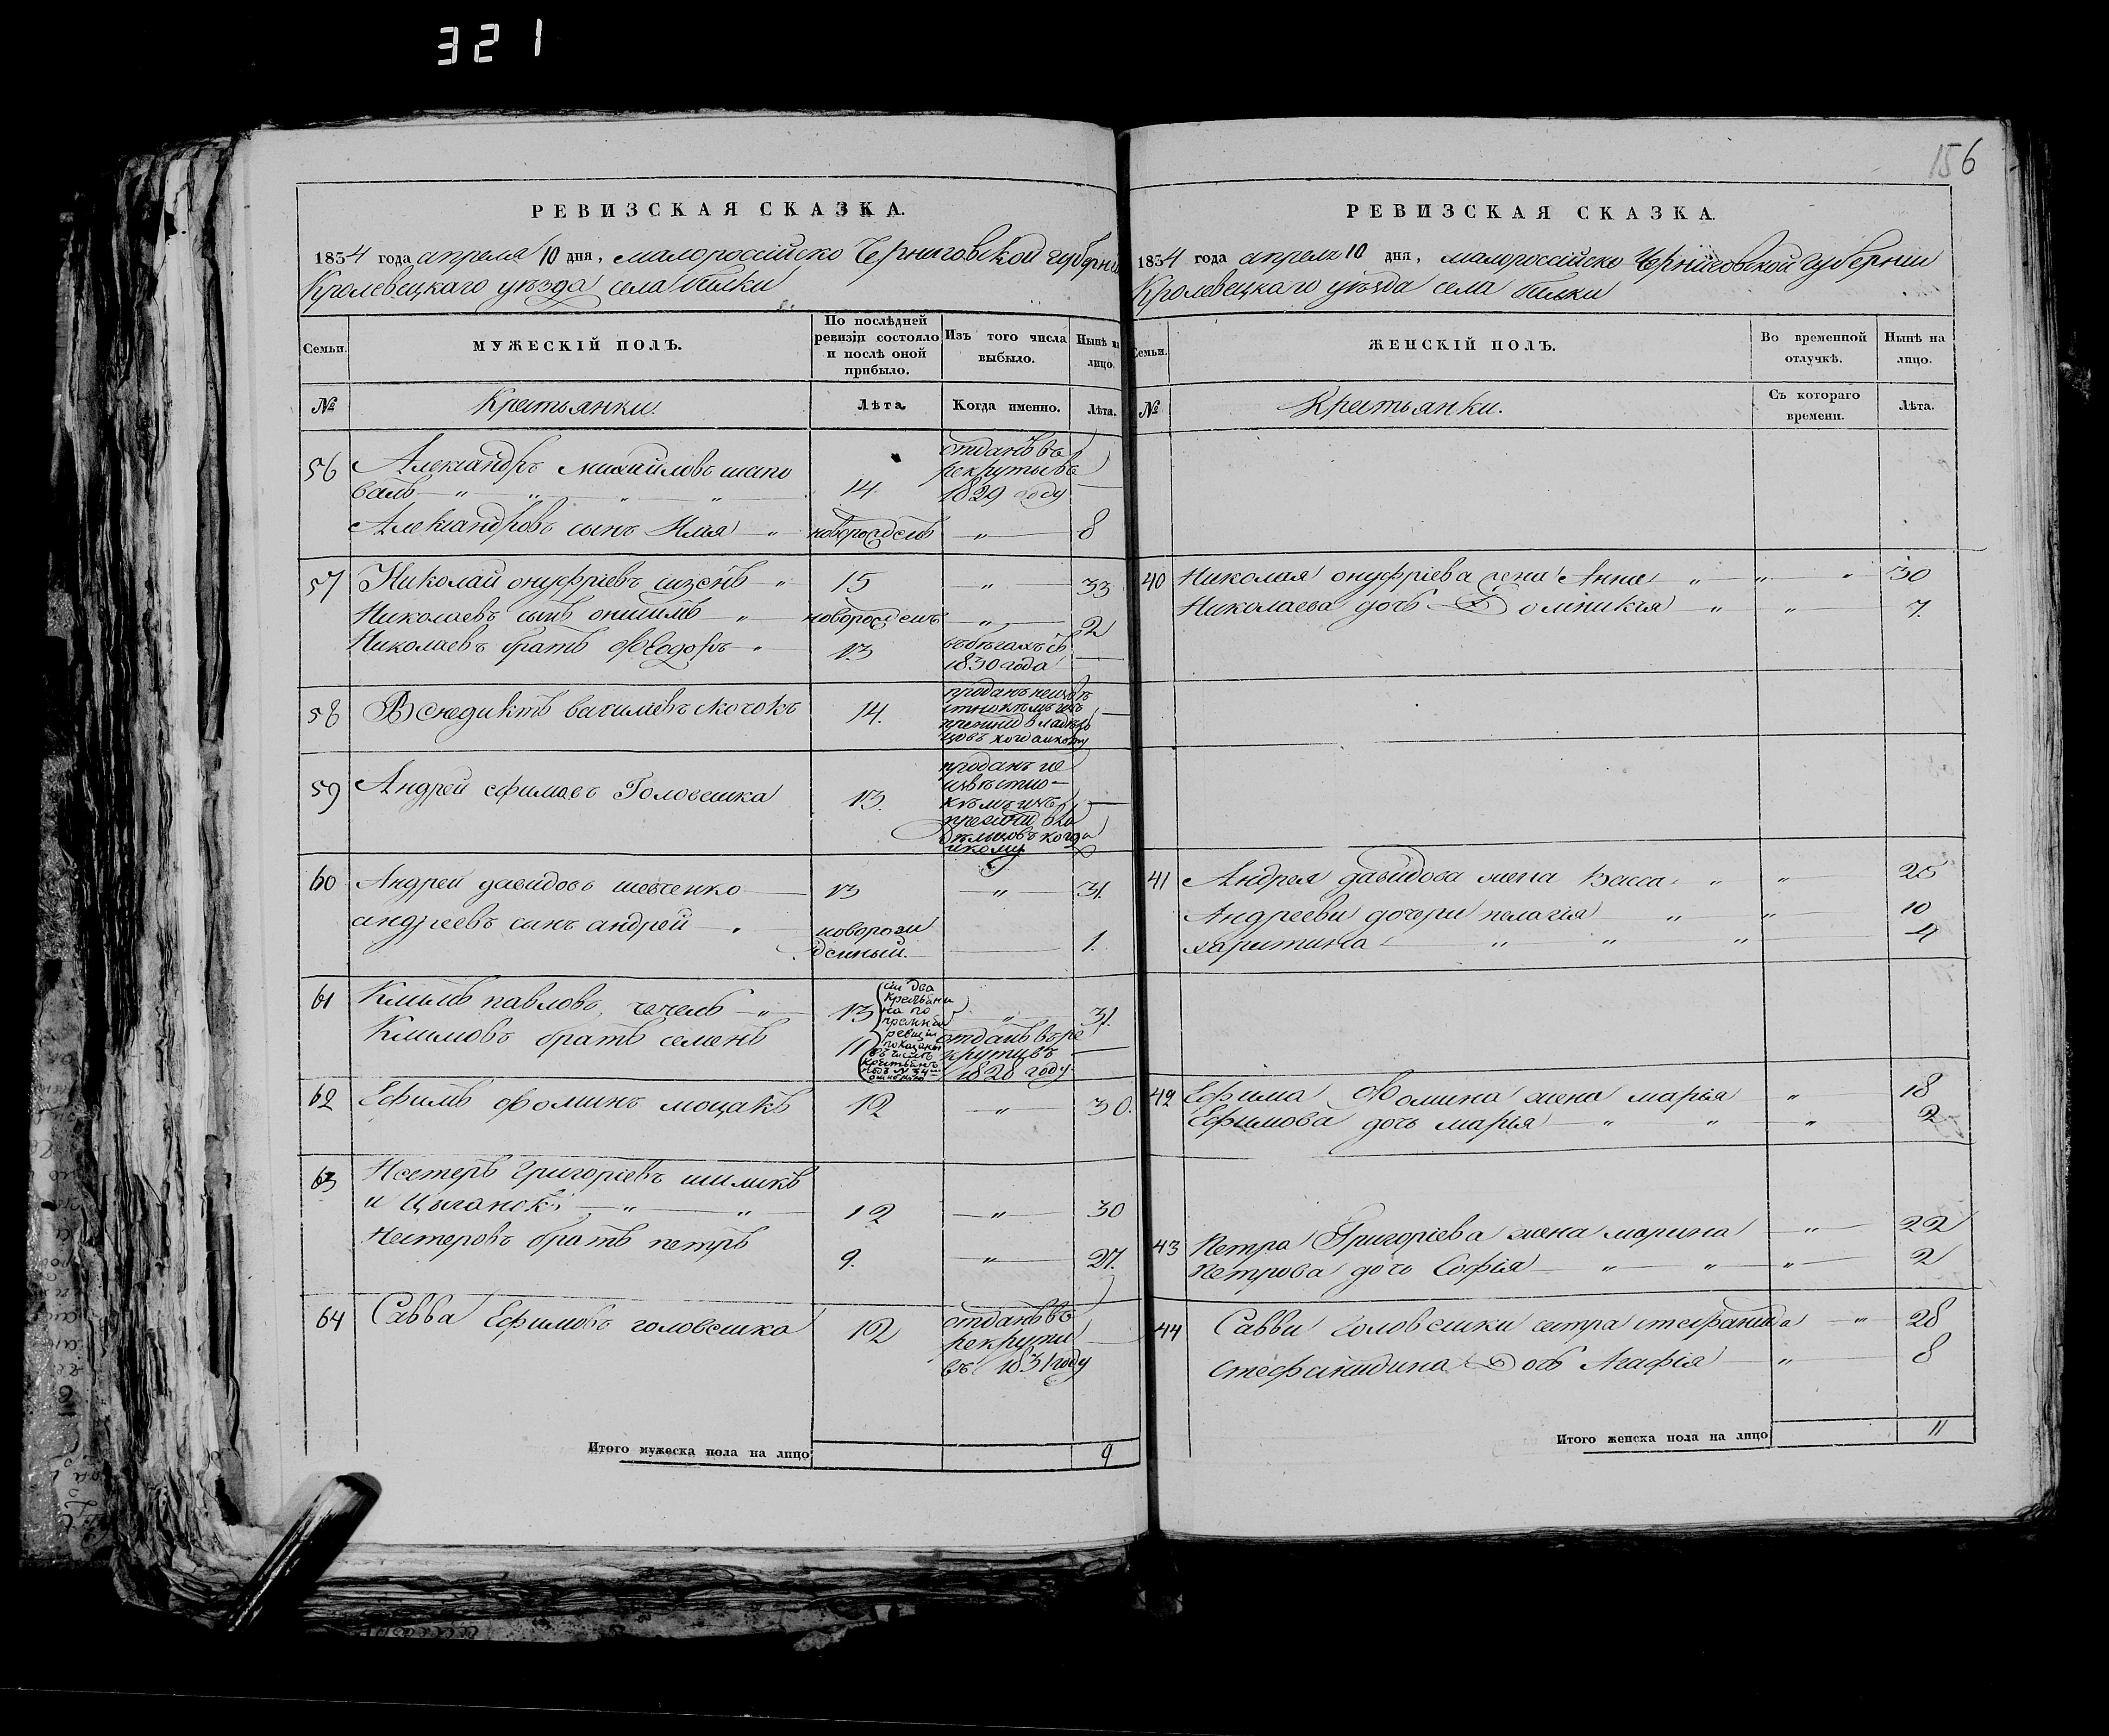 321
156
РЕВИЗСКАЯ СКАЗКА.
1834 года апреля 10 дня, малороссійско Черниговской губерніи
Кролевецкаго уѣзда села Билки
Семьи.
МУЖЕСКІЙ ПОЛЪ.
По послѣдней ревизіи состояло и послѣ оной прибыло.
Изъ того числа выбыло.
Нынѣ на лицо.
№
Крестьянки.
Лѣта
Когда именно.
Лѣта.
56 Александръ Михайловъ шапо
валъ — " — " — " — " 14. отданъ въ рекруты въ 1829 году —
Александровъ сынъ Илья — " новорожденъ — " — 8
57 Николай онуфріевъ сизенъ — " 15 — " — 33
Николаевъ сынъ онисимъ — " новорожденъ — " — 2
Николаевъ братъ Ѳеодоръ — " 13 въ бѣгахъ съ 1830 года —
58 Венедиктъ васильевъ 14. проданъ неизвѣ
стно кѣмъ изъ
прежнихъ владѣль
цовъ когда и кому —
59 Андрей ефимовъ Головешка 13. проданъ не
извѣстно
кѣмъ изъ
прежнихъ вла
дѣльцовъ когда
и кому —
60 Андрей давидовъ шевченко — 13 — " — 31.
андреевъ сынъ андрей — " новорож
денный. — 1.
61 Климъ павловъ, чечель — " 13 — " — 31.
Климовъ братъ семенъ 11 отданъ въ ре
крути въ
1828 году —
сіи два
крестьяни
на по
прежней
ревизіи
показаны
въ числѣ
крестьянъ
подъ № 34
62 Ефимъ Фоминъ моцакъ 12 — " — 30.
63 Нестеръ Григоріевъ шиликъ
и Цыганокъ — " — " 12 — " — 30
Нестеровъ братъ петръ 9. — " — 27.
64 Савва Ефимовъ головешка 12 отданъ въ
рекруты
въ 1831 году —
Итого мужеска пола на лицо 9
РЕВИЗСКАЯ СКАЗКА.
1834 года апреля 10 дня, малороссійско Черниговской губерніи
Кролевецкаго уѣзда села Билки
Семьи.
ЖЕНСКІЙ ПОЛЪ.
Во временной отлучкѣ.
Нынѣ на лицо.
№
Крестьянки.
Съ котораго времени.
Лѣта.
40 Николая онуфріева жена Анна — " — " — " — 30
Николаева дочь Доминикія — " — " — 7.
41 Андрея давидова жена Васса — " — " — 25
Андреевы дочери пелагія — " — " — 10
харитина — " — " — " — 4
42 Ефима Фомина жена марья — " — 18
Ефимова дочь марія — " — " — " — 2
43 Петра Григоріева жена марина — " — 22
Петрова дочь Софія — " — " — " — 2
44 Саввы головешки сестра стефанида — " — 28
стефанидина Дочь Агафія — " — 8
Итого женска пола на лицо 11